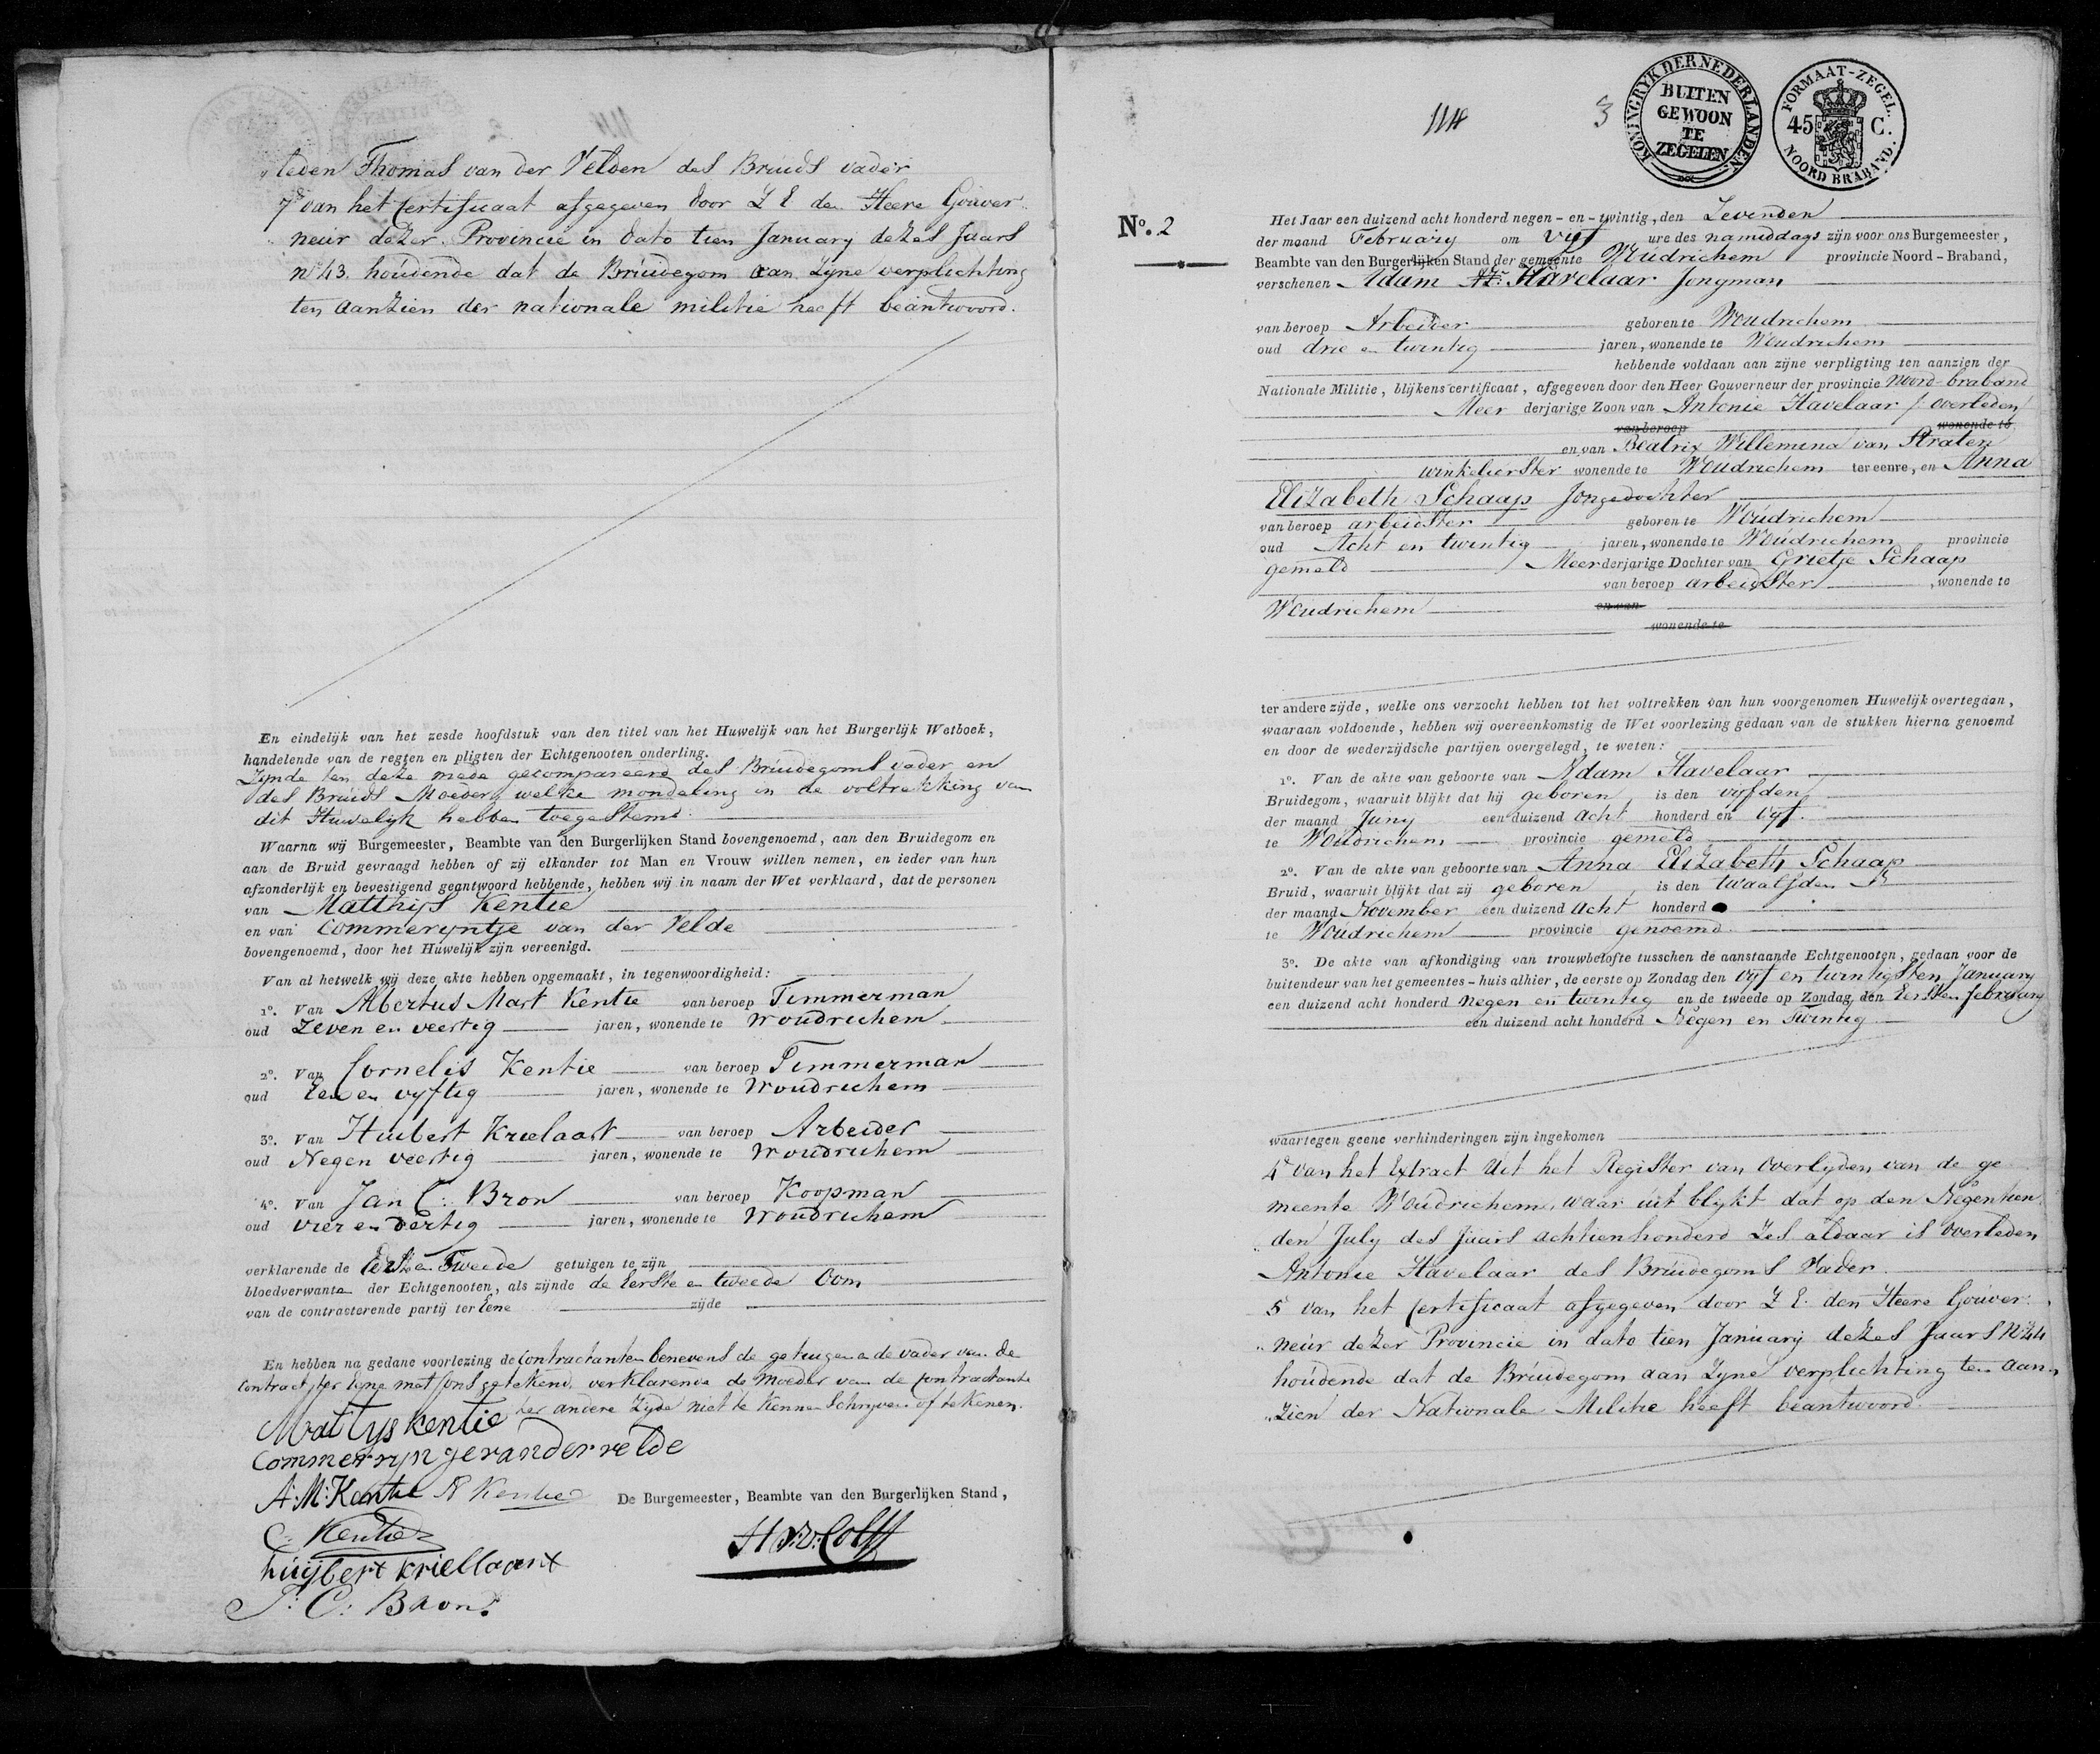 leden Thomas van der Velden des Bruids vader
7º van het certificaat afgegeven door Z E den Heere Gouver
neur dezer Provincie in dato tien January dezes Jaars
nº 43. houdende dat de Bruidegom aan zyne verplichting
ten aanzien der nationale militie heeft beantwoord.
En eindelijk van het zesde hoofdstuk van den titel van het Huwelijk van het Burgerlijk Wetboek,
handelende van de regten en pligten der Echtgenooten onderling.
Zynde ten deze mede gecompareerd des Bruidegoms vader en
des Bruids Moeder, welke mondeling in de voltrekking van
dit Huwelyk hebben toegestemd.
Waarna wij Burgemeester, Beambte van den Burgerlijken Stand bovengenoemd, aan den Bruidegom en
aan de Bruid gevraagd hebben of zij elkander tot Man en Vrouw willen nemen, en ieder van hun
afzonderlijk en bevestigend geantwoord hebbende, hebben wij in naam der Wet verklaard, dat de personen
van Matthijs Kentie
en van Commeryntje van der Velde
bovengenoemd, door het Huwelijk zijn vereenigd.
Van al hetwelk wij deze akte hebben opgemaakt, in tegenwoordigheid:
1º. Van Albertus Mart Kentie van beroep Timmerman
oud Zeven en veertig jaren, wonende te Woudrichem
2º. Van Cornelis Kentie van beroep Timmerman
oud Een en vyftig jaren, wonende te Woudrichem
3º. Van Huibert Krielaart van beroep Arbeider
oud Negen veertig jaren, wonende te Woudrichem
4º. Van Jan C: Bron van beroep Koopman
oud vier en dertig jaren, wonende te Woudrichem
verklarende de Eerste en Tweede getuigen te zijn
bloedverwanten der Echtgenooten, als zijnde de Eerste en tweede Oom
van de contracterende partij ter Eene zijde
En hebben na gedane voorlezing de Contractanten benevens de getuigen en de vader van de
contract ter Eene met ons getekend, verklarende de Moeder van de contractante
ter andere Zyde niet te kennen Schryven of tekenen.
Mattys Kentie
Commerynge van der velde
A: M: Kentie A Kentie
De Burgemeester, Beambte van den Burgerlijken Stand,
C: Kentie
huijbert kriellaart
J: C: Bron

Nº. 2
114 3
KONINGRYK DER NEDERLANDEN
BUITEN
GEWOON
TE
ZEGELEN
FORMAAT-ZEGEL.
45 C.
NOORD BRABAND.
Het Jaar een duizend acht honderd negen-en-twintig, den Zevenden
der maand February om vyf ure des namiddags zijn voor ons Burgemeester,
Beambte van den Burgerlijken Stand der gemeente Woudrichem provincie Noord-Braband,
verschenen Adam Havelaar Jongman
van beroep Arbeider geboren te Woudrichem
oud drie en twintig jaren, wonende te Woudrichem
hebbende voldaan aan zijne verpligting ten aanzien der
Nationale Militie, blijkens certificaat, afgegeven door den Heer Gouverneur der provincie Noord-braband
Meer derjarige Zoon van Antonie Havelaar / overleden/
van beroep wonende te
en van Beatrix Willemina van Straten
winkelierster wonende te Woudrichem ter eenre, en Anna
Elizabeth Schaap Jongedochter
van beroep arbeidster geboren te Woudrichem
oud Acht en twintig jaren, wonende te Woudrichem provincie
gemeld Meer derjarige Dochter van Grietje Schaap
van beroep arbeidster, wonende te
Woudrichem en van
wonende te
ter andere zijde, welke ons verzocht hebben tot het voltrekken van hun voorgenomen Huwelijk overtegaan,
waaraan voldoende, hebben wij overeenkomstig de Wet voorlezing gedaan van de stukken hierna genoemd
en door de wederzijdsche partijen overgelegd, te weten:
1º. Van de akte van geboorte van Adam Havelaar
Bruidegom, waaruit blijkt dat hij geboren is den vyfden
der maand Juny een duizend acht honderd en vyf.
te Woudrichem provincie gemeld
2º. Van de akte van geboorte van Anna Elizabeth Schaap
Bruid, waaruit blijkt dat zij geboren is den twaalfden
der maand November een duizend acht honderd
te Woudrichem provincie genoemd.
3º. De akte van afkondiging van trouwbelofte tusschen de aanstaande Echtgenooten, gedaan voor de
buitendeur van het gemeentes-huis alhier, de eerste op Zondag den vyf en twintigsten January
een duizend acht honderd negen en twintig en de tweede op Zondag den Eersten february
een duizend acht honderd Negen en Twintig
waartegen geene verhinderingen zijn ingekomen
4º van het Extract Uit het Register van Overlyden van de ge
meente Woudrichem, waar uit blykt dat op den Negentien
den July des Jaars achtienhonderd Zes aldaar is Overleden
Antonie Havelaar des Bruidegoms Vader.
5 van het certificaat afgegeven door Z E. den Heere Gouver
neur dezer Provincie in dato tien January dezes Jaars Nº 44
houdende dat de Bruidegom aan Zyne verplichting ten aan
zien der Nationale Militie heeft beantwoord.